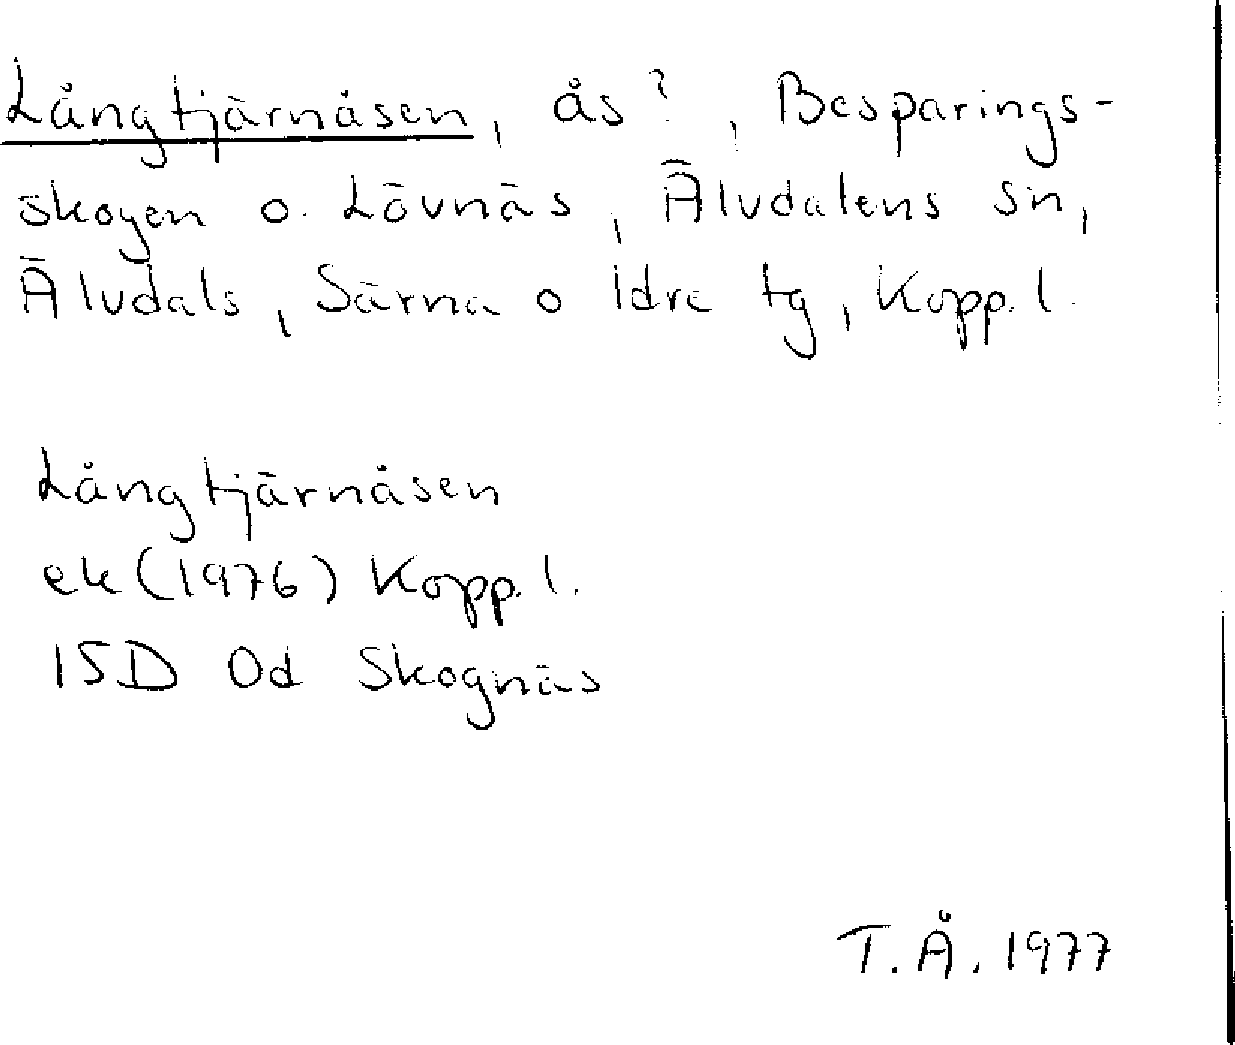 Långtjärnåsen, ås?, Besparings-
skogen o. Lövnäs, Älvdalens sn,
Älvdals, Särna o Idre tg, Kopp. l.
Långtjärnåsen
ek (1976) Kopp. l.
15D 0d Skognäs
T. Å. 1977